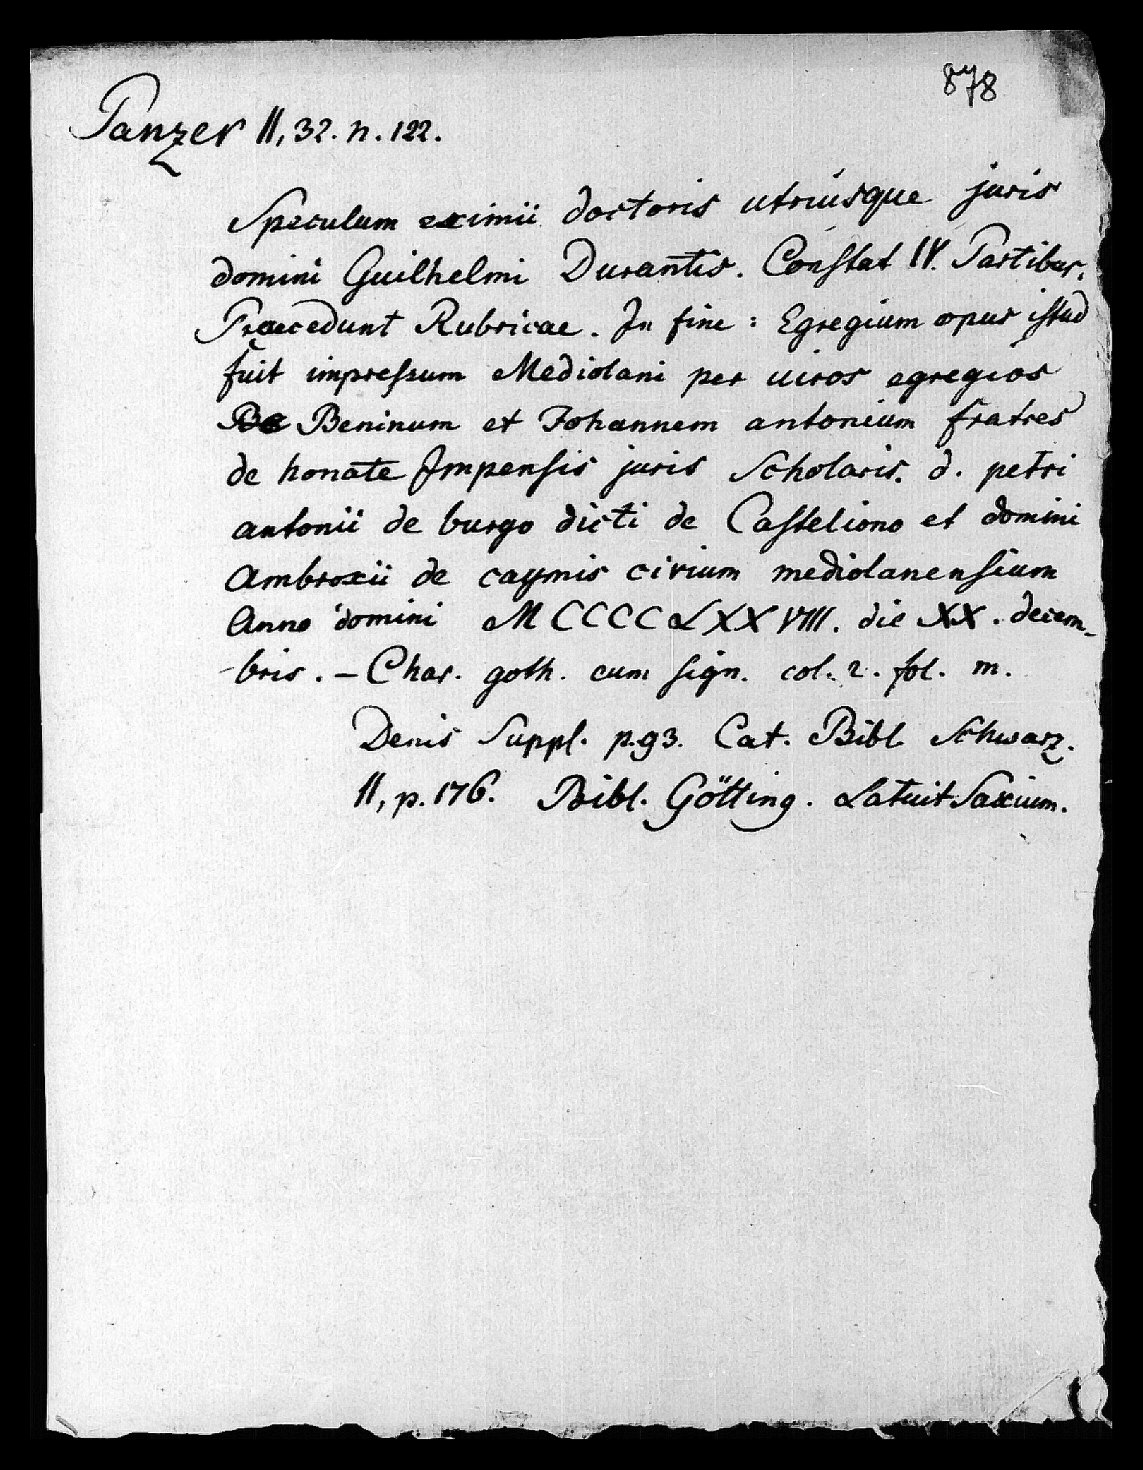 878
Panzer II, 32. n. 122.
Speculum eximii doctoris utriusque juris
domini Guilhelmi Durantis. Constat IV. Partibus.
Praecedunt Rubricae. In fine: Egregium opus istud
fuit impressum Mediolani per uiros egregios
Beninum et Johannem antonium fratres
de honate Impensis juris Scholaris. d. petri
antonii de burgo dicti de Casteliono et domini
Ambroxii de caymis civium mediolanensium
Anno domini MCCCCLXXVIII. die XX. decem-
bris. – Char. goth. cum sign. col. 2. fol. m.
Denis Suppl. p. 93. Cat. Bibl Schwarz.
II, p. 176. Bibl. Götting. Latuit Saxium.